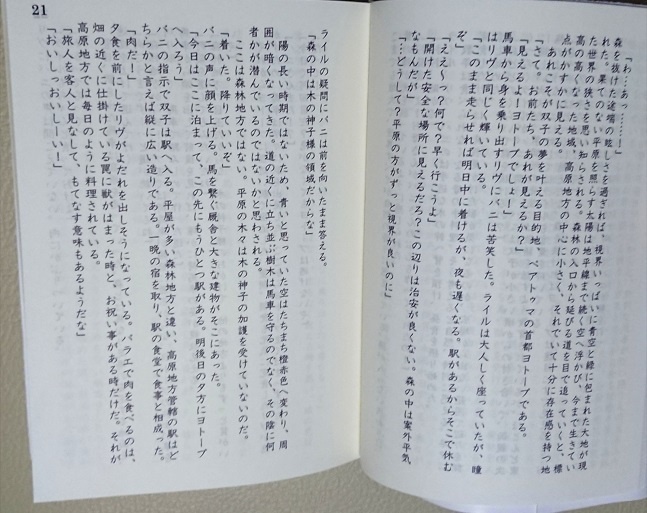 「わ…あっ……！」
森を抜けた途端の眩しさを過ぎれば、視界いっぱいに青空と緑に包まれた大地が現
れた。果てのない平原を照らす太陽は地平線まで続く空へ浮かび、今まで生きてい
た世界の狭さを思い知らされる。森林の入口から延びる道を目で追っていくと、標
高の高くなった地域、高原地方の中心に小さく、それでいて十分に存在感を持つ地
点がかすかに見える。
あれこそが双子の夢を叶える目的地、ベアトゥマの首都ヨトープである。
「さて。お前たち、あれが見えるか？」
「見えるよーヨトープでしょー！」
馬車から身を乗り出すリヴにバニは苦笑した。ライルは大人しく座っていたが、瞳
はリヴと同じく輝いている。
「このまま走らせれば明日中に着けるが、夜も遅くなる。駅があるからそこで休む
ぞ」
「ええ〜っ？何で？早く行こうよ」
「開けた安全な場所に見えるだろ？この辺りは治安が良くない。森の中は案外平気
なもんだが」
「…どうして？平原の方がずっと視界が良いのに」
ライルの疑問にバニは前を向いたまま答える。
「森の中は木の神子様の領域だからな」
陽の長い時期ではないため、青いと思っていた空はたちまち橙赤色へ変わり、周
囲が暗くなってきた。道の近くに立ち並ぶ樹木は馬車を守るのでなく、その陰に何
者かが潜んでいるのではないかと思わされる。
ここは森林地方ではない。平原の木々は木の神子の加護を受けていないのだ。
「着いた。降りていいぞ」
バニの声に顔を上げる。馬を繋ぐ厩舎と大きな建物がそこにあった。
「今日はここに泊まって、この先にもうひとつ駅がある。明後日の夕方にヨトープ
へ入ろう」
バニの指示で双子は駅へ入る。平屋が多い森林地方と違い、高原地方管轄の駅はど
ちらかと言えば縦に広い造りである。一晩の宿を取り、駅の食堂で食事と相成った。
「肉だー！」
夕食を前にしたリヴがよだれを出しそうになっている。バラエで肉を食べるのは、
畑の近くに仕掛けている罠に獣がはまった時と、お祝い事がある時だけだ。それが
高原地方では毎日のように料理されている。
「旅人を客人と見なして、もてなす意味もあるようだな」
「おいしっおいしーいー！」
21